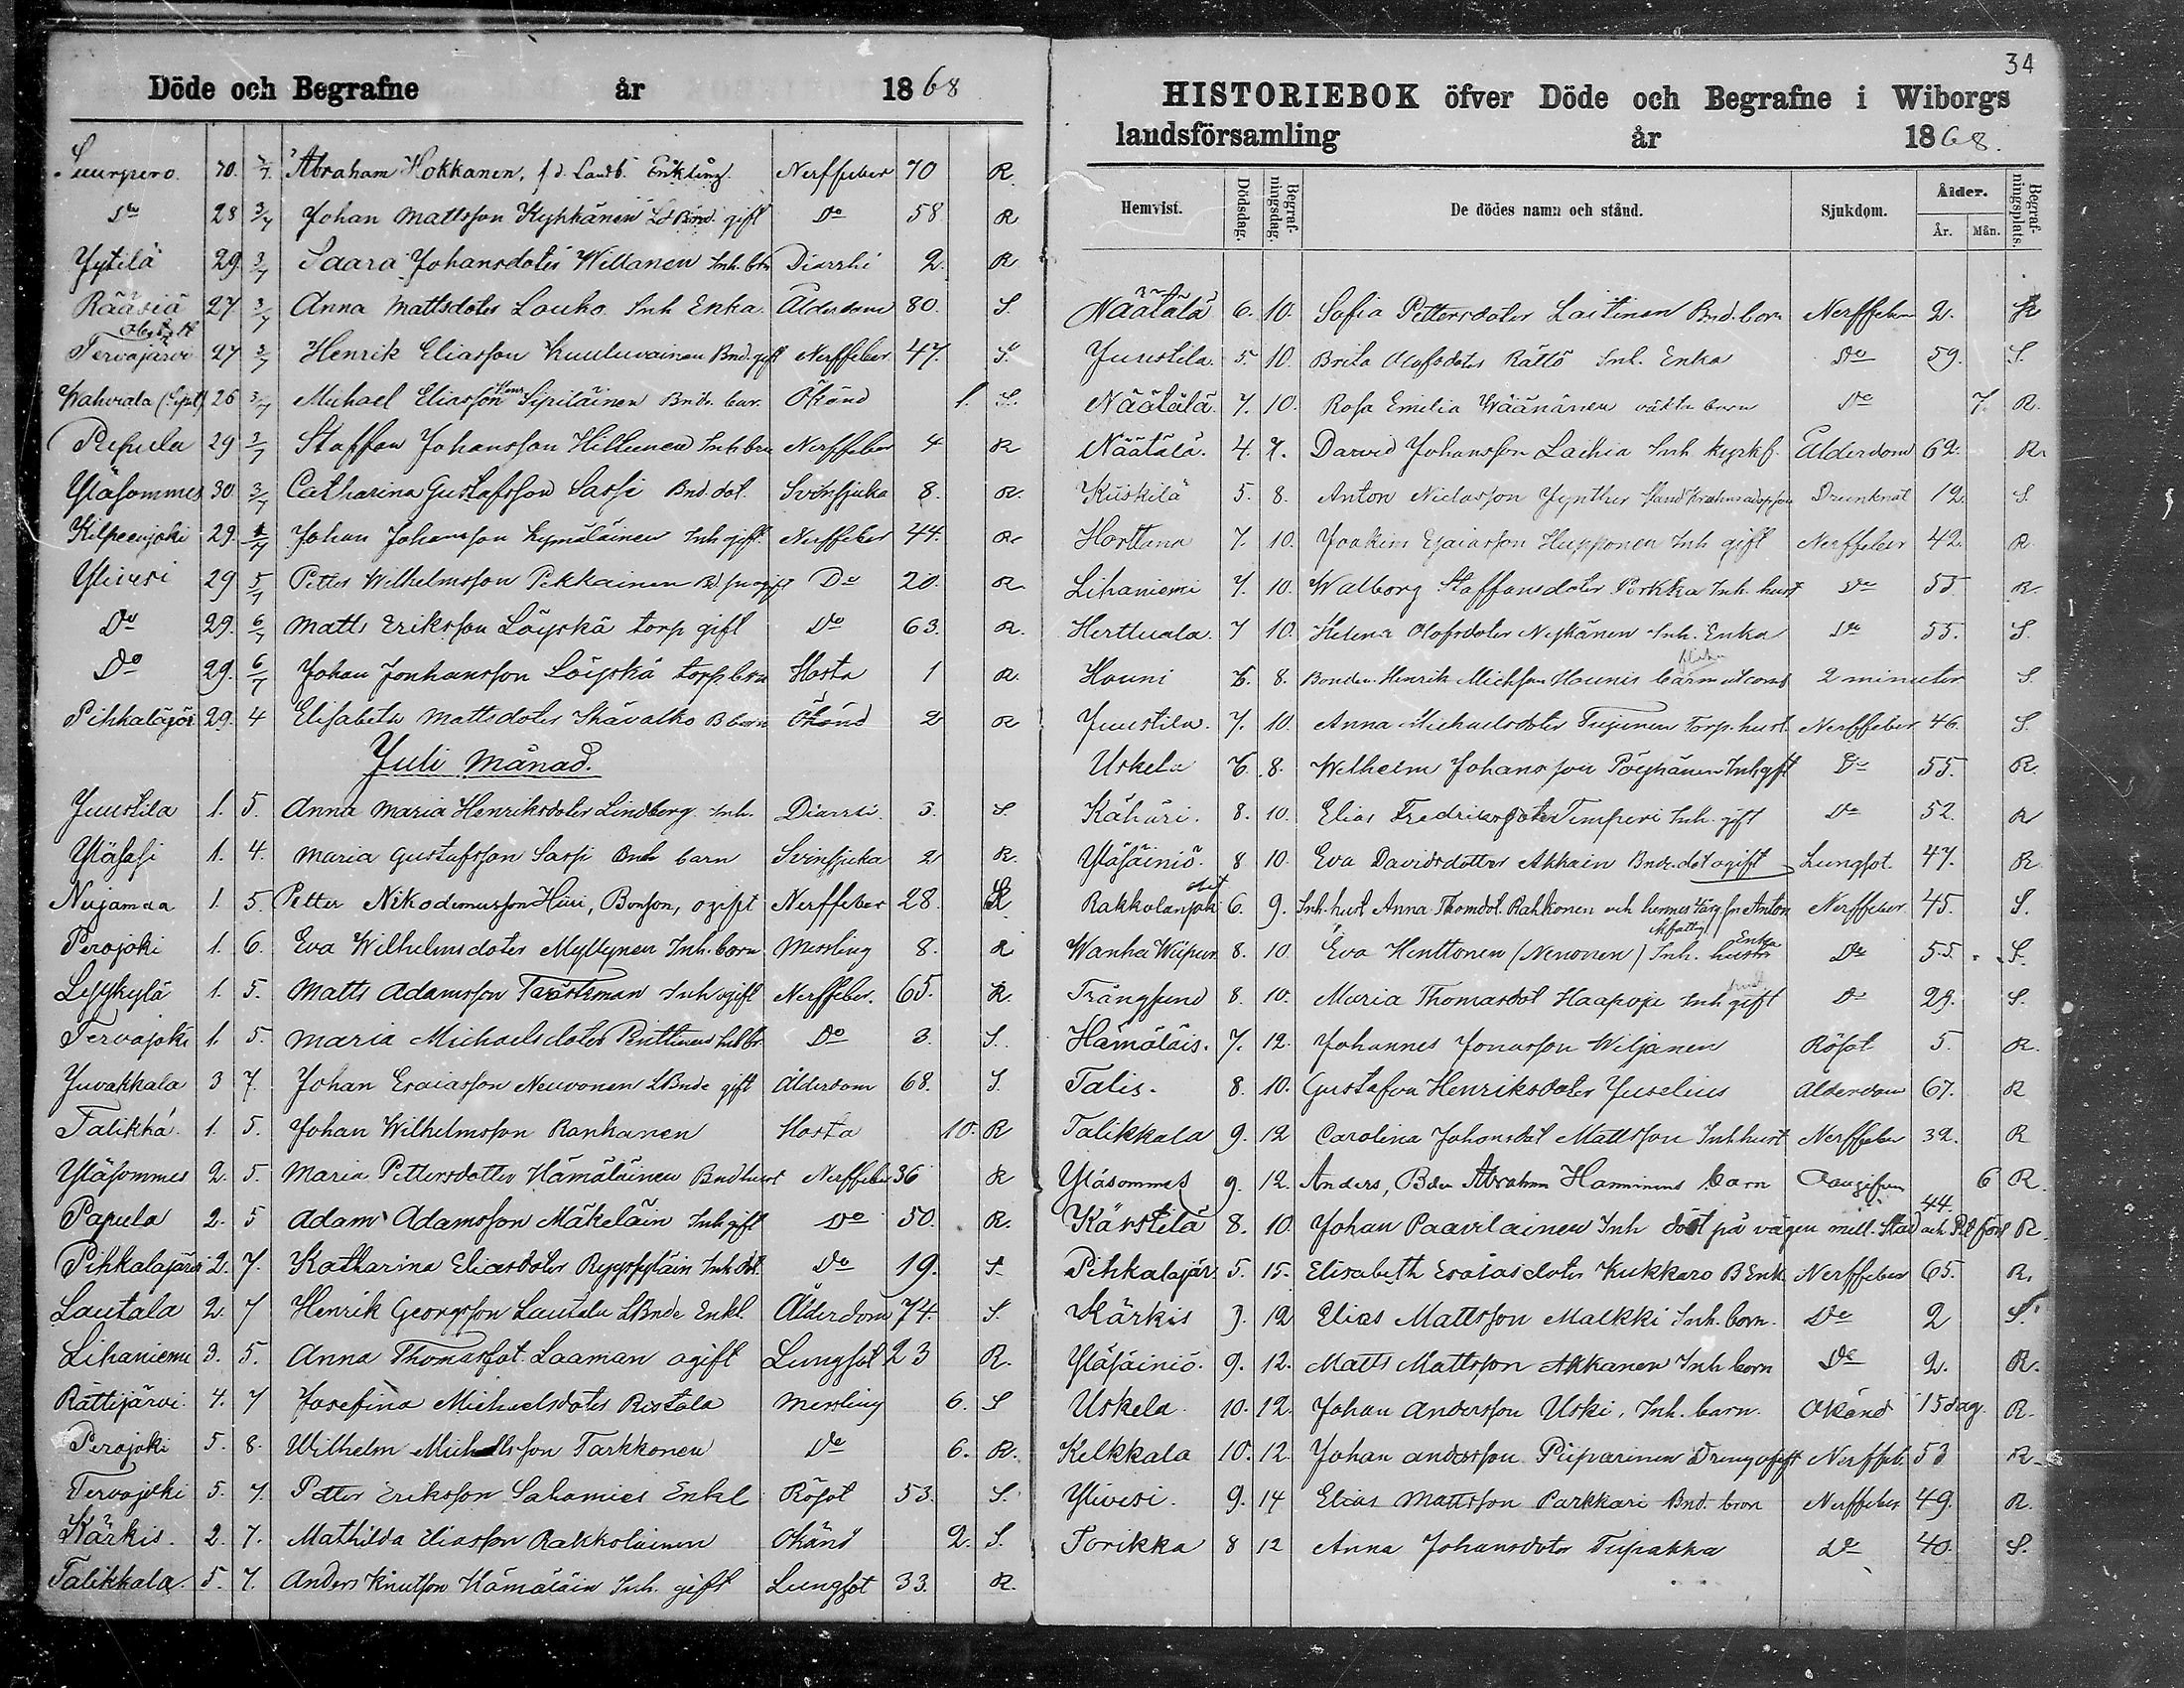 Döde och Begrafne år 1868
Suurpero. 30. 2/7. Abraham Hokkanen, f.d. Landb. Enkling. Nerffeber 70 R.
Do 28 3/7 Johan Mattsson Kyhkänen Ld Bnd. gift Do 58 R
Yytilä 29. 3/7 Saara Johansdoter Willanen Inh. brn Diarrhi 2. R
Rääsiä 27 3/7 Anna Mattsdoter Louko Inh Enka. Ålderdom 80. S.
Tervajärvi 27 3/7 Henrik Eliasson Kuuluvainen Bnd. gift Nerffeber 47. S.
Wahviala (Sipil) 26 3/7 Michael Eliasson Sipiläinen Bnds. bar. Okänd 1. S.
Pepula 29 3/7 Staffan Johansson Hiltunen Inh brn Nerffeber 4 R
Yläsommes 30. 3/7 Catharina Gustafsson Sassi Bnd. dot. Svinsjuka 8. R.
Kilpeenjoki 29. 1/7 Johan Johansson Kymäläinen Inh gift. Nerffeber 44. R
Ylivesi 29 5/7 Petter Wilhelmsson Pekkainen ogift Do 20. R
Do 29. 6/7 Matts Eriksson Löyskä torp gift Do 63. R.
Do 29. 6/7 Johan Jonhansson Löyskä torp. brn Hosta 1 R.
Pihkalajär 29. 4 Elisabeth Mattsdoter Skävalko B. barn Okänd 2 R
Juli Månad.
Juustila 1. 5. Anna Maria Henriksdoter Lindberg Inh. Diarrhi. 3. S.
Yläsasi 1. 4. Maria Gustafsson Sassi Bnds barn Svinsjuka 2 R.
Nujamaa 1. 5. Petter Nikodemusson Huri, Bonson, ogift Nerffeber 28. R
Perojoki 1. 6. Eva Wilhelmsdoter Myllynen Inh. barn Messling 8. R
Lyyhylä 1. 5. Matts Adamsson Inh ogift Nerffeber. 65. R.
Tervajoki 1. 5. Maria Michaelsdoter Penttinen Do 3. S.
Juvakkala 3 7. Johan Esaiasson Neuvonen LBnde gift Ålderdom 68. S.
Talikka. 1. 5. Johan Wilhelmsson Rankanen Hosta 10. R
Yläsommes 2. 5. Maria Pettersdotter Hämäläinen Bndhust Nerffeber 36 R
Papula 2. 5 Adam Adamsson Mäkeläin Inh gift Do 50. R.
Pihkalajärvi 2. 7. Katharina Eliasdoter Inh. dot. Do 19. S.
Lautala 2. 7 Henrik Georgsson Lautala LBnde Enkl. Ålderdom 74. S.
Lihaniemi 3. 5. Anna Thomasdot. Laaman ogift Lungsot 23 R.
Rättijärvi. 4. 7 Josefina Michaelsdoter Ristola Messling 6. S
Perojoki 5. 8. Wilhelm Michelsson Tarkkonen Do 6. R.
Tervajoki 5. 7. Petter Eriksson Sahamies Enkl Rösot 53. S.
Kärkis. 2. 7. Mathilda Eliasson Rakkolainen Okänd 2. S.
Talikkala. 5. 7. Anders Knutson Hämäläin Inh. gift Lungsot 33. R.
34
HISTORIEBOK öfver Döde och Begrafne i Wiborgs
landsförsamling år 1868.
Hemvist. Dödsdag. Begrafningsdag. De dödes namn och stånd. Sjukdom. Ålder. År. Mån. Begrafningsplats.
Näätälä 6. 10. Sofia Pettersdoter Laitinen Bnd. barn Nerffeber 2. R
Juustila. 5. 10. Brita Olofsdoter Rättö Inh. Enka Do 59. S.
Näätälä. 7. 10. Rosa Emelia Wäänänen oäkta barn Do 7. R.
Näätälä. 4. 7. Darvid Johansson Laihia Inh kyrkf. Ålderdom 62. R.
Kiiskilä 5. 8. Anton Niclasson Jynther Drunknat 12. S.
Horttana 7. 10. Joakim Esaiasson Hupponen Inh gift Nerffeber 42. R
Lihaniemi 7. 10. Walborg Staffansdoter Pörkka Inh. hust Do 55 R.
Herttuala. 7 10. Helena Olofsdoter Nykänen Inh. Enka Do 55. S.
Houni 6. 8. Bonden Henrik Michson Hounis barn 2 minuter S.
Juustila. 7. 10. Anna Michaelsdoter Torp. hust. Nerffeber 46. S.
Uskela 6. 8. Wilhelm Johansson Pöyhänen Inh. gift Do 55. R.
Kähäri. 8. 10. Elias Fredriksson Timperi Inh. gift Do 52. R
Yläsäiniö. 8 10. Eva Davidsdotter Akkain Bnds. dot ogift Lungsot. 47. R.
Rakkolanjoki 6. 9. Inh. hust Anna Thomdot. Rahkonen och hennes Anton Nerffeber. 45. S.
Wanha Wiipuri 8. 10. Eva Henttonen (Nenonen) Inh. hustr Enka Do 55. S.
Trångsund 8. 10. Maria Thomasdot Haapoja Inh gift Do 29. S.
Hämäläis. 7. 12. Johannes Jonasson Wiljanen Rösot 5. R.
Talis. 8. 10. Gustafva Henriksdoter Juselius Ålderdom 67. R
Talikkala 9. 12 Carolina Johansdot Mattsson Inh hust Nerffeber 32. R
Yläsommes 9. 12. Anders, Bden Abraham Hanninens barn 6 R.
Kärstilä 8. 10. Johan Paavilainen Inh död på vägen mell. Stad och 44. R.
Pihkalajär. 5. 15. Elisabeth Esaiasdoter Kukkaro B Enk. Nerffeber 65. R.
Kärkis 9. 12 Elias Mattsson Malkki Inh. barn. Do 2 S.
Yläsäiniö. 9. 12. Matts Mattsson Akkanen Inh barn Do 2. R.
Uskela 10. 12. Johan Andersson Uski, Inh. barn. Okänd 15 dag. R.
Kelkkala 10. 12. Johan Andersson Piiparinen Dreng ogift Nerffeb. 53 R.
Ylivesi. 9. 14 Elias Mattsson Parkkari Bnd. bror Nerffeber 49. R.
Sorikka 8 12 Anna Johansdoter Tupakka Do 40. S.